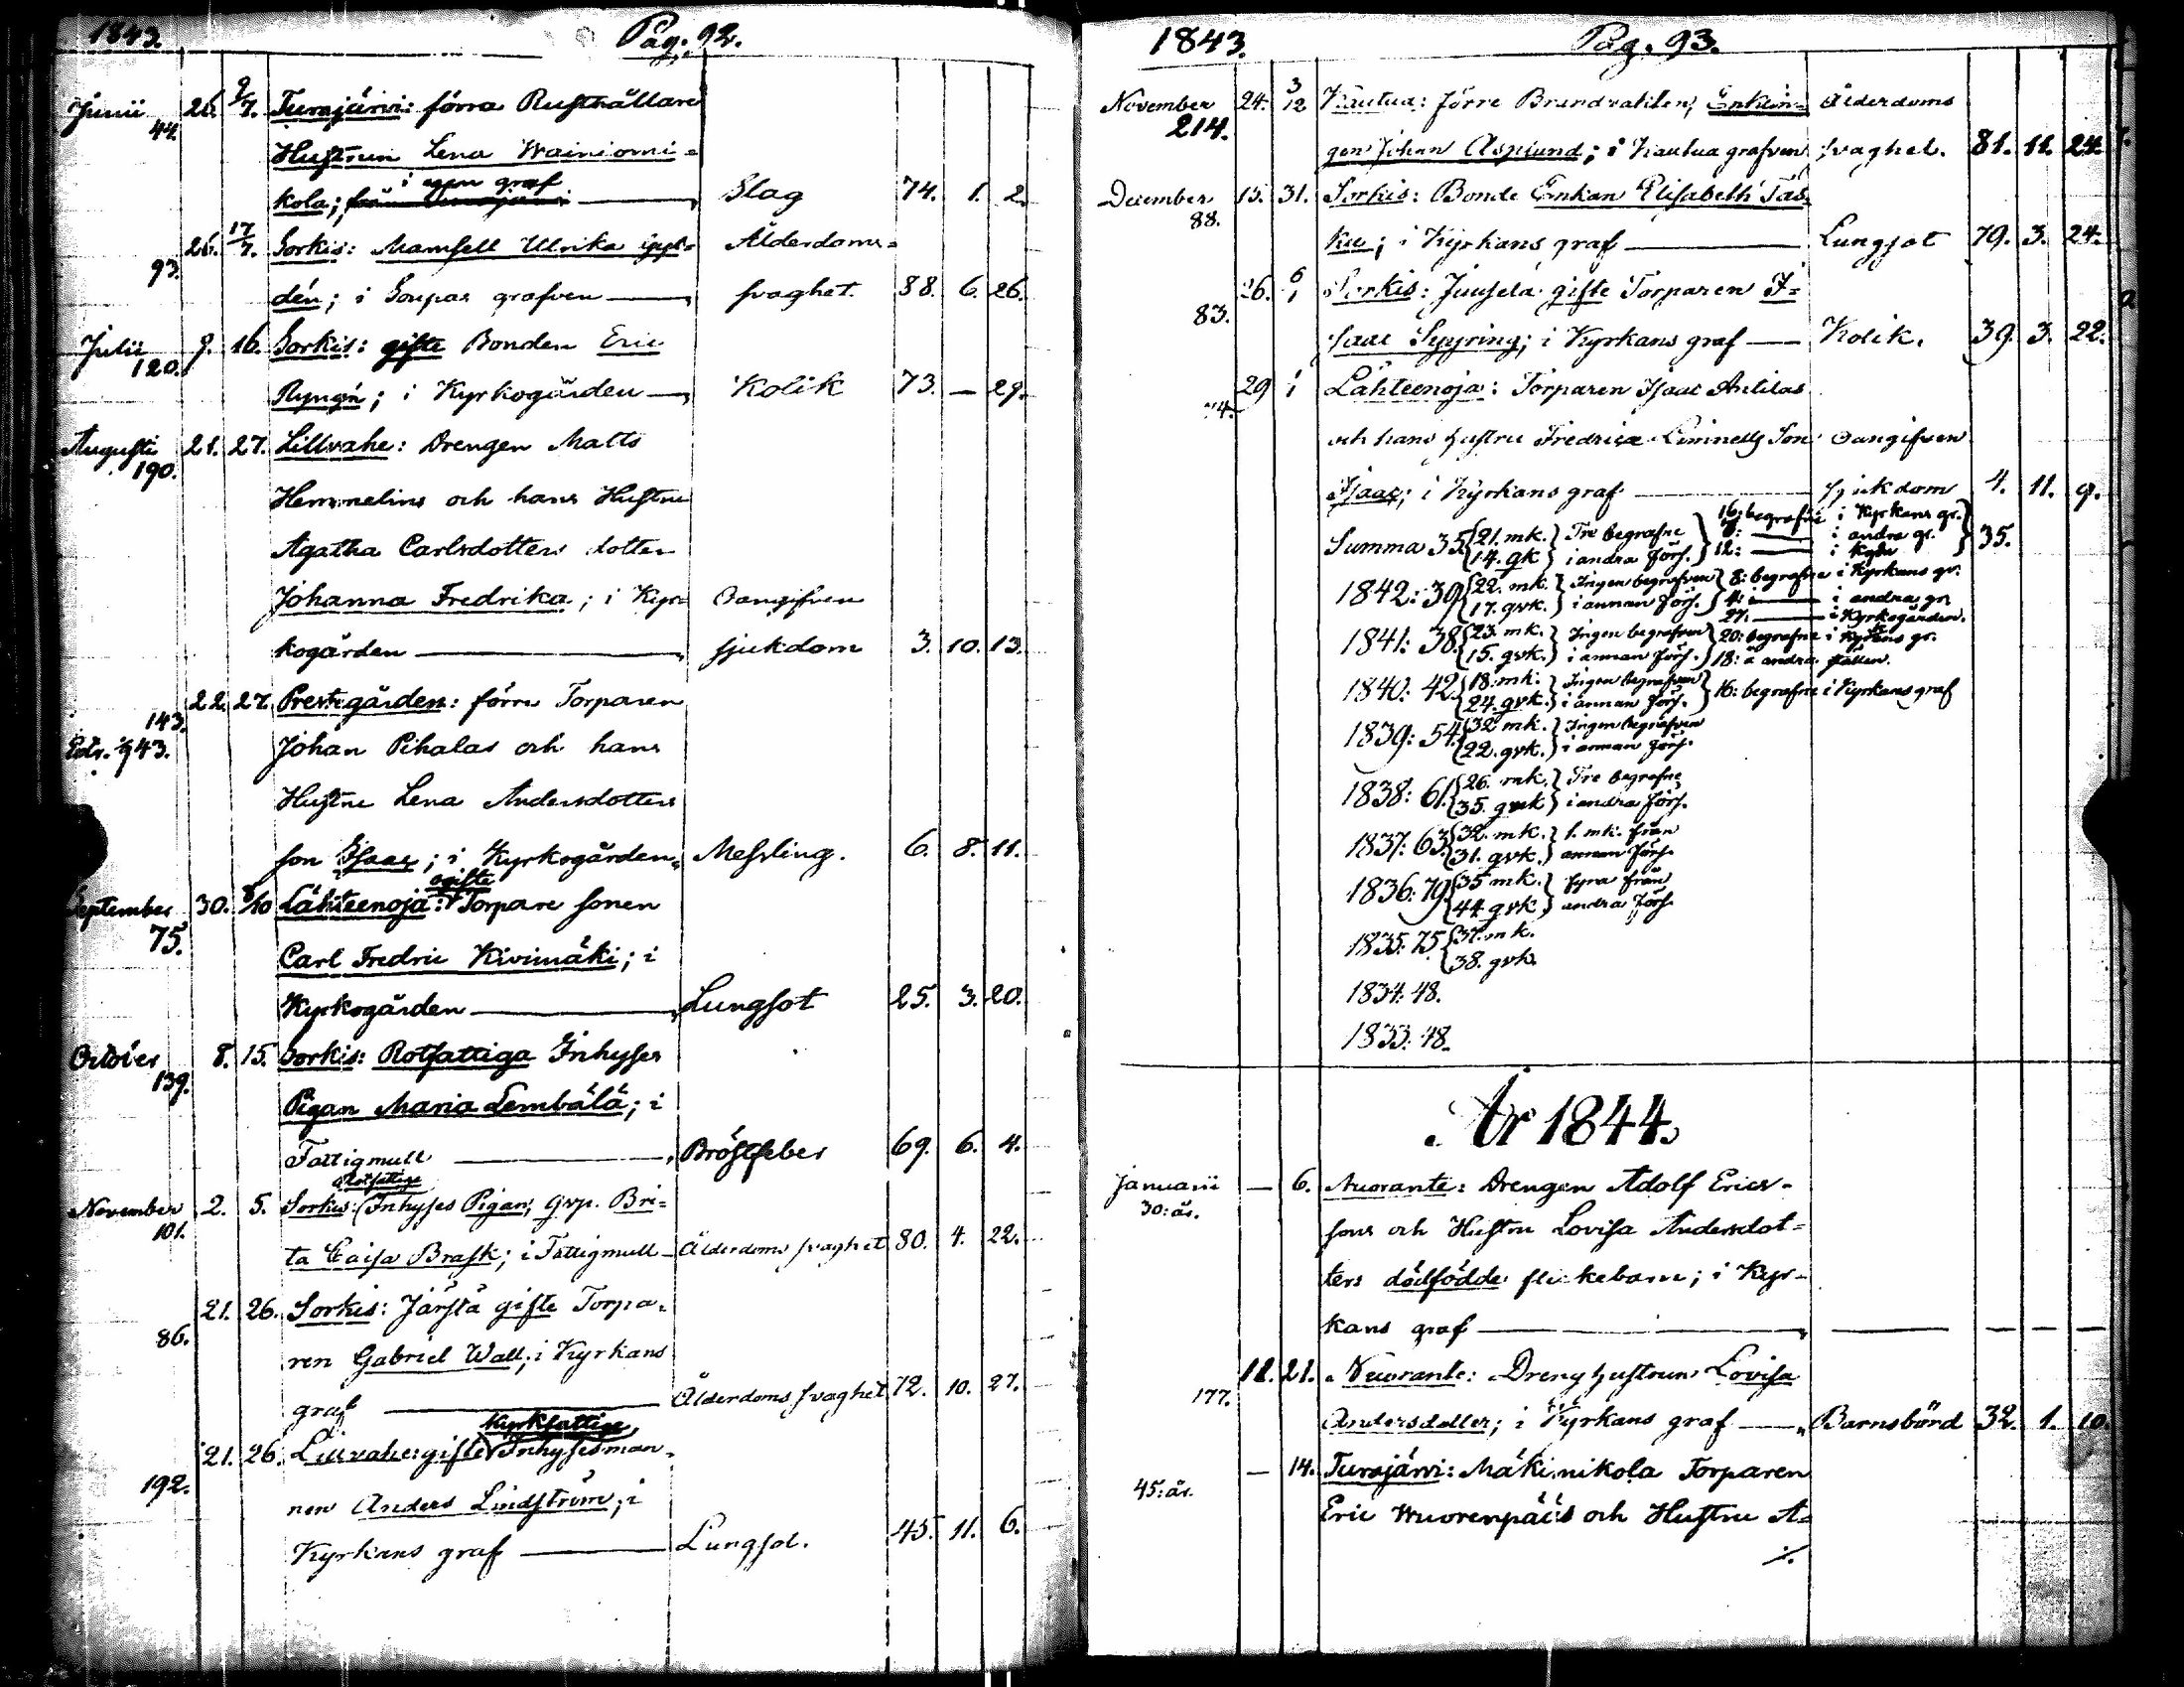 1843. Pag. 92.
Junii 26. 9/7. Turajärvi: förra Rusthållare
44. Hustrun Lena Wainiomi=
kola; i egen graf Slag 74. 1. 2.
26. 17/7. Sorkis: Mamsell Ulrika Ålderdoms=
93. dén; i Soupas grafven svaghet. 88. 6. 26.
Julii 9. 16. Sorkis: gifte Bonden Eric
120. i Kyrkogården Kolik 73. — 29.
Augusti 21. 27. Lillvahe: Drengen Matts
190. Hemmelins och hans Hustru
Agatha Carlsdotters dotter
Johanna Fredrika; i Kyr= Oangifven
kogården sjukdom 3. 10. 13.
22. 27. Prestegården: förra Torparen
143. Johan Pihalas och hans
Hustru Lena Andersdotters
son Isaac; i Kyrkogården Messling. 6. 8. 11.
September 30. 8/10 Lähteenoja: ogifte Torpare sonen
75. Carl Fredric Kivimäki; i
Kyrkogården Lungsot 25. 3. 20.
October 8. 15. Sorkis: Rotfattiga Inhyses
139. Pigan Maria Lembälä; i
Fattigmull Bröstfeber 69. 6. 4.
Rotfattige
November 2. 5. Sorkis: Inhyses Pigan, gvp. Bri=
101. ta Caisa Brask; i Fattigmull Ålderdoms svaghet 80. 4. 22.
21. 26. Sorkis: Järstä gifte Torpa=
86. ren Gabriel Wall; i Kyrkans
graf Ålderdoms svaghet 72. 10. 27.
Kyrkfattige
21. 26. Lillvahe: gifte Inhysesman=
192. nen Anders Lindström; i
Kyrkans graf Lungsot. 45. 11. 6.
1843. Pag. 93.
November 24. 3/12 Kautua: förre Brukdvakten, Enklin= Ålderdoms
214. gen Johan Asplund; i Kautua grafven svaghet. 81. 11. 24.
December 15. 31. Sorkis: Bonde Enkan Elisabeth Tas=
88. ku; i Kyrkans graf Lungsot 79. 3. 24.
26. 6/1 Sorkis: Juusela gifte Torparen I=
83. saac Spyring; i Kyrkans graf Kolik. 39. 3. 22.
29 Lähteenoja: Torparen Isaac Antilas
74. och hans hustru Fredrica Liminells Son Oangifven
Isaac; i Kyrkans graf sjukdom 4. 11. 9.
Summa 35 {21. mk. 14. qk} Tre begrafne i andra förs. } 16: begrafne i Kyrkans gr. 7: — i andra gr. 12: — i Kgdn } 35.
1842: 39 {22. mk. 17. qvk.} Ingen begrafven i annan förs. } 8: begrafne i Kyrkans gr. 4: — i andra gr. 27. — i Kyrkogården.
1841: 38. {23. mk. 15. qvk.} Ingen begrafven i annan förs. } 20: begrafne i Kyrkans gr. 18: å andra ställen.
1840: 42. {18. mk. 24. qvk.} Ingen begrafven i annan förs. } 16: begrafne i Kyrkans graf
1839: 54. {32 mk. 22. qvk.} Ingen begrafven i annan förs.
1838: 61. {26. mk. 35. qvk} Tre begrafne i andra förs.
1837: 63. {32. mk. 31. qvk.} 1. mk. från annan förs.
1836: 79. {35 mk. 44. qvk} fyra från andra förs.
1835: 75 {37. mk. 38. qvk.
1834: 48.
1833: 48.
År 1844.
Januarii — 6. Nuorante: Drengen Adolf Erics=
30: år. sons och Hustru Lovisa Andersdot=
ters dödfödde flickebarn; i Kyr=
kans graf — — — —
18. 21. Nuorante: Dreng hustrun Lovisa
177. Andersdotter; i Kyrkans graf Barnsbörd 32. 1. 10.
— 14. Turajärvi: Mäkinikola Torparen
45: år. Eric Wuorenpääs och Hustru A=
./.